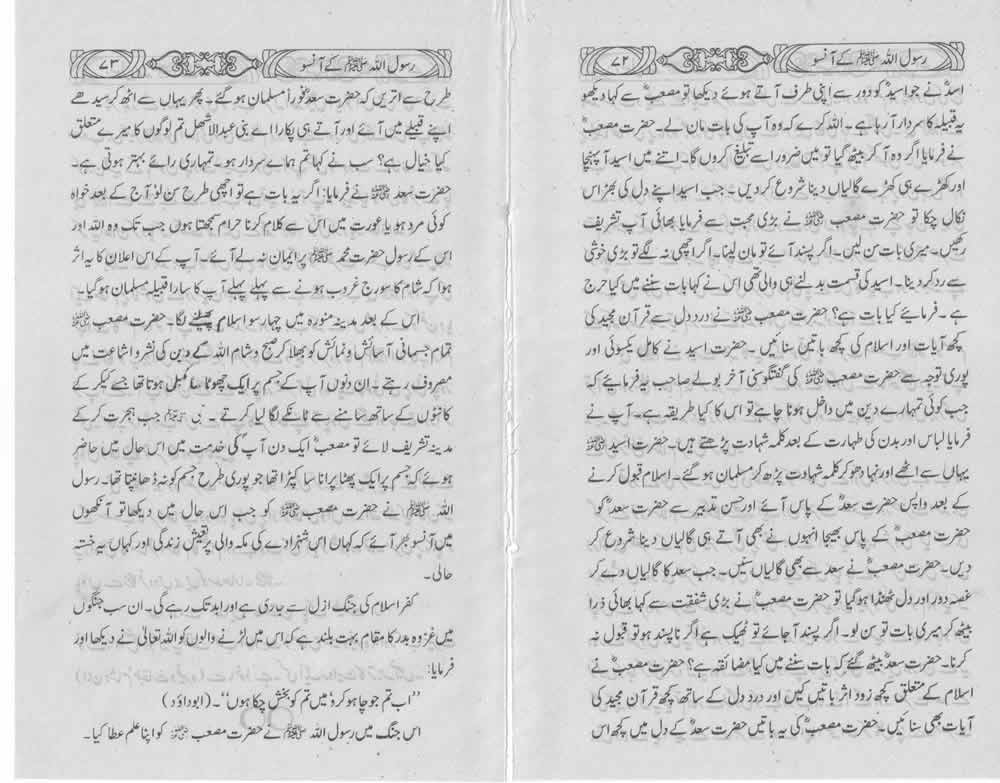 رسول اللہ ﷺ کے آنسو
۷۲
اسدؓ نے جو اسید کو دور سے اپنی طرف آتے ہوئے دیکھا تو مصعبؓ سے کہا دیکھو
یہ قبیلہ کا سردار آ رہا ہے۔ اللہ کرے کہ وہ آپ کی بات مان لے۔ حضرت مصعبؓ
نے فرمایا اگر وہ آ کر بیٹھ گیا تو میں ضرور اسے تبلیغ کروں گا۔ اتنے میں اسید آپہنچا
اور کھڑے ہی کھڑے گالیاں دینا شروع کر دیں۔ جب اسید اپنے دل کی بھڑاس
نکال چکا تو حضرت مصعب ؓ نے بڑی محبت سے فرمایا بھائی آپ تشریف
رکھیں۔ میری بات سن لیں۔ اگر پسند آئے تو مان لینا۔ اگر اچھی نہ لگے تو بڑی خوشی
سے رد کر دینا۔ اسید کی قسمت بدلنے ہی والی تھی اس نے کہا بات سننے میں کیا حرج
ہے۔ فرمایئے کیا بات ہے؟ حضرت مصعب ؓ نے درد دل سے قرآن مجید کی
کچھ آیات اور اسلام کی کچھ باتیں سنائیں۔ حضرت اسید نے کامل یکسوئی اور
پوری توجہ سے حضرت مصعب ؓ کی گفتگو سنی آخر بولے صاحب یہ فرمایئے کہ
جب کوئی تمہارے دین میں داخل ہونا چاہے تو اس کا کیا طریقہ ہے۔ آپ نے
فرمایا لباس اور بدن کی طہارت کے بعد کلمہ شہادت پڑھتے ہیں۔ حضرت اسید ؓ
یہاں سے اٹھے اور نہا دھو کر کلمہ شہادت پڑھ کر مسلمان ہو گئے۔ اسلام قبول کرنے
کے بعد واپس حضرت سعدؓ کے پاس آئے اور حسن تدبیر سے حضرت سعدؓ کو
حضرت مصعبؓ کے پاس بھیجا انہوں نے بھی آتے ہی گالیاں دینا شروع کر
دیں۔ حضرت مصعبؓ نے سعد سے بھی گالیاں سنیں۔ جب سعد کا گالیاں دے کر
غصہ دور اور دل ٹھنڈا ہو گیا تو حضرت مصعبؓ نے بڑی شفقت سے کہا بھائی ذرا
بیٹھ کر میری بات تو سن لو۔ اگر پسند آ جائے تو ٹھیک ہے اگر ناپسند ہو تو قبول نہ
کرنا۔ حضرت سعدؓ بیٹھ گئے کہ بات سننے میں کیا مضائقہ ہے؟ حضرت مصعبؓ نے
اسلام کے متعلق کچھ زود اثر باتیں کیں اور درد دل کے ساتھ کچھ قرآن مجید کی
آیات بھی سنائیں۔ حضرت مصعبؓ کی یہ باتیں حضرت سعدؓ کے دل میں کچھ اس
رسول اللہ ﷺ کے آنسو
۷۳
طرح سے اتریں کہ حضرت سعدؓ فوراً مسلمان ہو گئے۔ پھر یہاں سے اٹھ کر سیدھے
اپنے قبیلے میں آئے اور آتے ہی پکارا اے بنی عبدالاشھل تم لوگوں کا میرے متعلق
کیا خیال ہے؟ سب نے کہا تم ہمارے سردار ہو۔ تمہاری رائے بہتر ہوتی ہے۔
حضرت سعد ؓ نے فرمایا: اگر یہ بات ہے تو اچھی طرح سن لو آج کے بعد خواہ
کوئی مرد ہو یا عورت میں اس سے کلام کرنا حرام سمجھتا ہوں جب تک وہ اللہ اور
اس کے رسول حضرت محمد ﷺ پر ایمان نہ لے آئے۔ آپ کے اس اعلان کا یہ اثر
ہوا کہ شام کا سورج غروب ہونے سے پہلے پہلے آپ کا سارا قبیلہ مسلمان ہو گیا۔
اس کے بعد مدینہ منورہ میں چہار سو اسلام پھیلنے لگا۔ حضرت مصعب ؓ
تمام جسمانی آسائش و نمائش کو بھلا کر صبح و شام اللہ کے دین کی نشر و اشاعت میں
مصروف رہتے۔ ان دنوں آپ کے جسم پر ایک چھوٹا سا کمبل ہوتا تھا جسے کیکر کے
کانٹوں کے ساتھ سامنے سے ٹانکے لگا لیا کرتے۔ نبی ﷺ جب ہجرت کر کے
مدینہ تشریف لائے تو مصعبؓ ایک دن آپ کی خدمت میں اس حال میں حاضر
ہوئے کہ جسم پر ایک پھٹا پرانا سا کپڑا تھا جو پوری طرح جسم کو نہ ڈھانپتا تھا۔ رسول
اللہ ﷺ نے حضرت مصعب ؓ کو جب اس حال میں دیکھا تو آنکھوں
میں آنسو بھر آئے کہ کہاں اس شہزادے کی مکہ والی پرتعیش زندگی اور کہاں یہ خستہ
حالی۔
کفر اسلام کی جنگ ازل سے جاری ہے اور ابد تک رہے گی۔ ان سب جنگوں
میں غزوہ بدر کا مقام بہت بلند ہے کہ اس میں لڑنے والوں کو اللہ تعالیٰ نے دیکھا اور
فرمایا:
’’اب تم جو چاہو کرو میں تم کو بخش چکا ہوں‘‘۔ (ابوداؤد)
اس جنگ میں رسول اللہ ﷺ نے حضرت مصعب ؓ کو اپنا علم عطا کیا۔